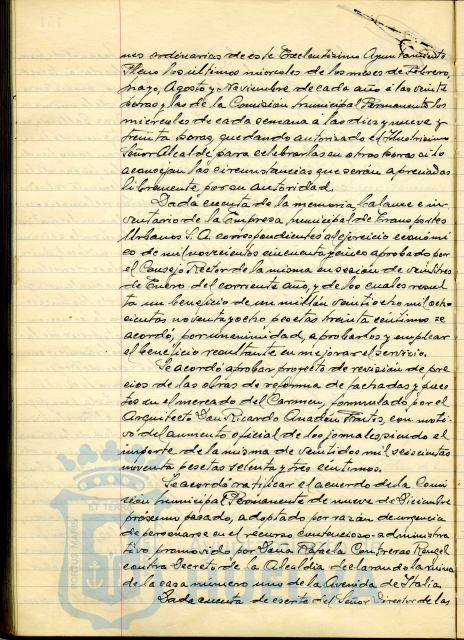 nes ordinarias de este Excelentísimo Ayuntamiento
Pleno los últimos miercoles de los meses de Febrero,
Mayo, Agosto y Noviembre de cada año á las veinte
horas y las de la Comisión municipal Permanente los
miercoles de cada semana á las diez y nueve y
treinta horas, quedando autorizado el Ilustrísimo
Señor Alcalde para celebrarlas en otras horas si lo
aconsejan las circunstancias que serán apreciadas
libremente por su autoridad.
Dada cuenta de la memoria, balance e in-
ventario de la Empresa municipal de Transportes
Urbanos S. A. correspondientes al ejercicio económi-
co de mil novecientos cincuenta y cinco aprobado por
el Consejo Rector de la misma en sesión de veintitres
de Enero del corriente año, y de los cuales resul-
ta un beneficio de un millón veintiocho mil ocho-
cientos noventa y ocho pesetas treinta centimos se
acordó, por unanimidad, aprobarlos y emplear
el beneficio resultante en mejorar el servicio.
Se acordó aprobar proyecto de revisión de pre-
cios de las obras de reforma de fachadas y pues-
tos en el mercado del Carmen, formulado por el
Arquitecto Don Ricardo Anadón Frutos, con moti-
vo del aumento oficial de los jornales, siendo el
importe de la misma de veintidos mil seiscientas
noventa pesetas setenta y tres centimos.
Se acordó ratificar el acuerdo de la Comi-
sión municipal Permanente de nueve de Diciembre
próximo pasado, adoptado por razón de urgencia
de personarse en el recurso contencioso-administra-
tivo promovido por Doña Rafaela Contreras Rengel
contra Decreto de la Alcaldia declarando la ruina
de la casa numero uno de la Avenida de Italia
Dada cuenta de escrito del Señor Director de las
ET TERRAE
PORTUS MARIS